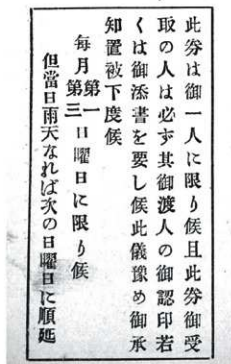 此劵は御一人に限り候且此劵御受
取の人は必ず其御渡人の御認印若
くは御添書を要し候此儀豫め御承
知置被下度候
每月第一第三日曜日に限り候
但當日雨天なれば次の日曜日に順延